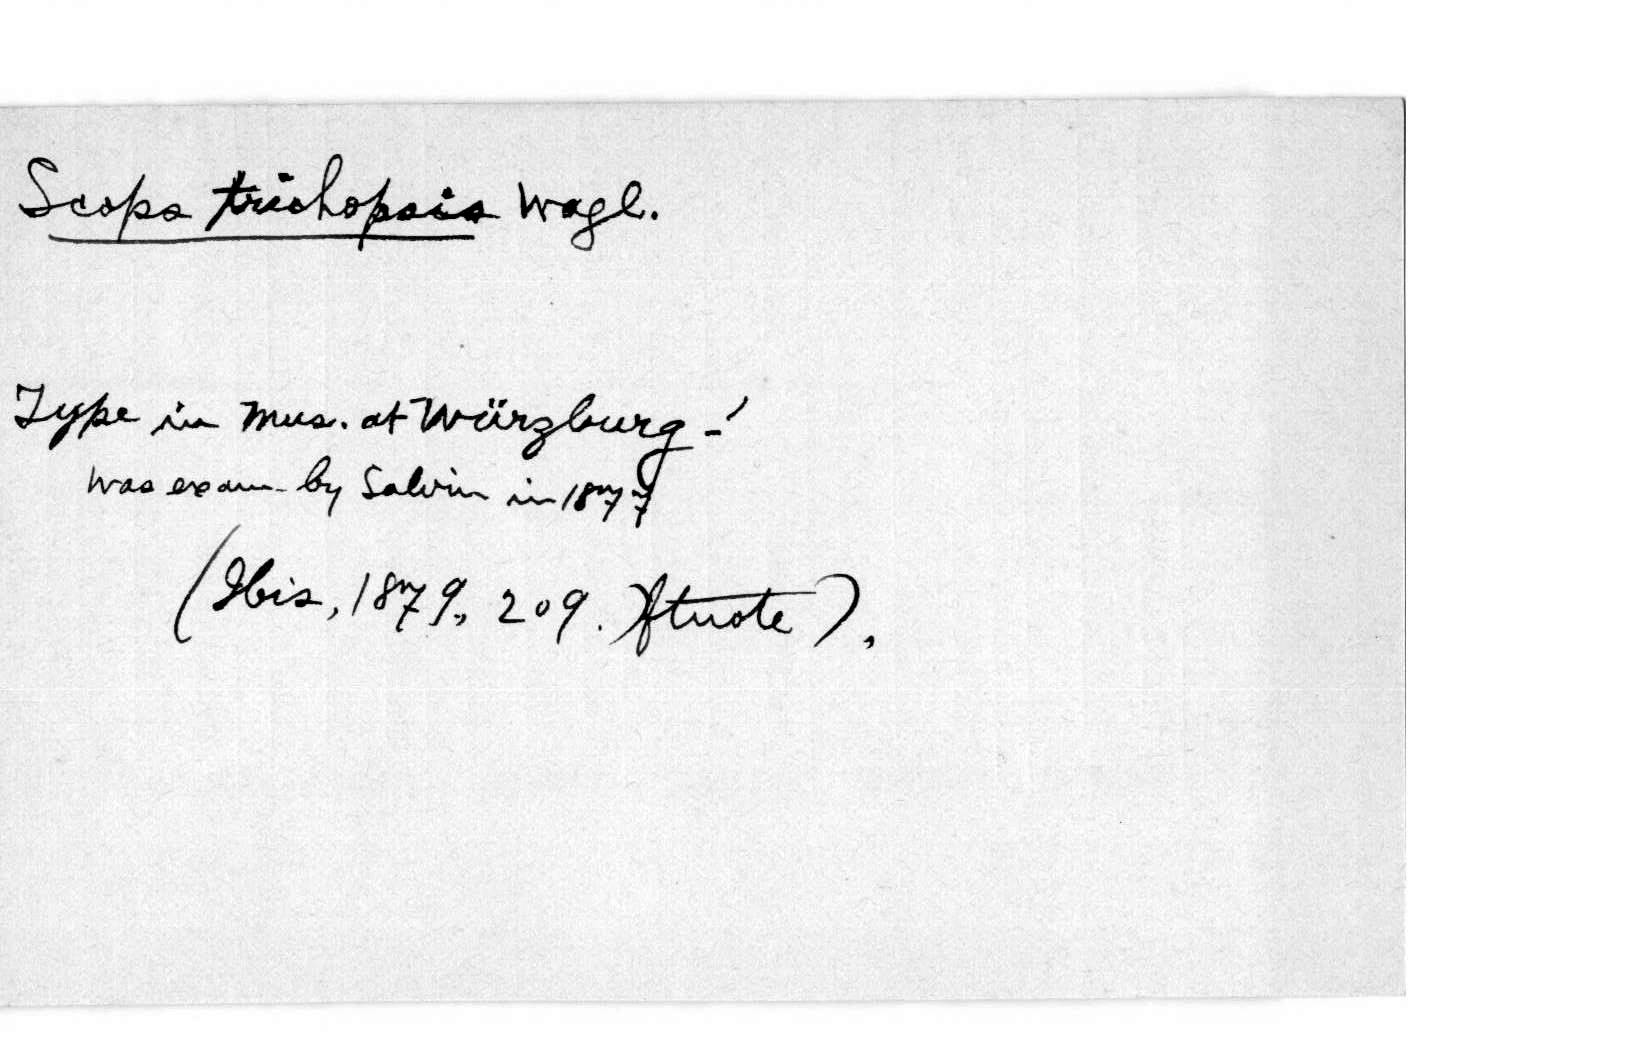 Scops trichopsis Wagl.
Type in Mus. at Würzburg -!
Was exam. by Salvin in 1877
(Ibis, 1879, 209. ftnote).